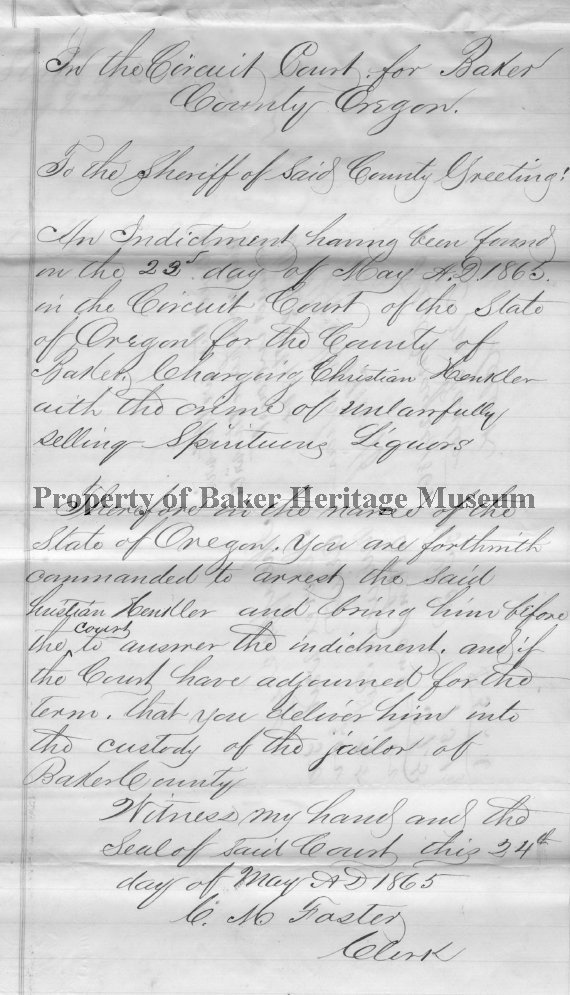 In the Circuit Court for Baker
County Oregon.
To the Sheriff of Said County Greeting!
An Indictment having been found
on the 23d day of May A.D. 1865.
in the Circuit Court of the State
of Oregon for the County of
Baker, Charging Christian Henkler
with the crime of unlawfully
selling Spirituous Liquors
Property of Baker Heritage Museum
Therefore in the name of the
State of Oregon. You are forthwith
commanded to arrest the said
Christian Henkler and bring him before
the court to answer the indictment. and if
the Court have adjourned for the
Term. that you deliver him into
the custody of the jailor of
Baker County
Witness my hand and the
Seal of Said Court this 24th
day of May A D 1865
C. M Foster
Clerk